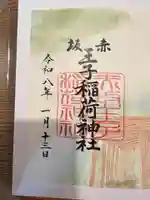 赤坂
王子稲荷神社
令和八年 一月十三日